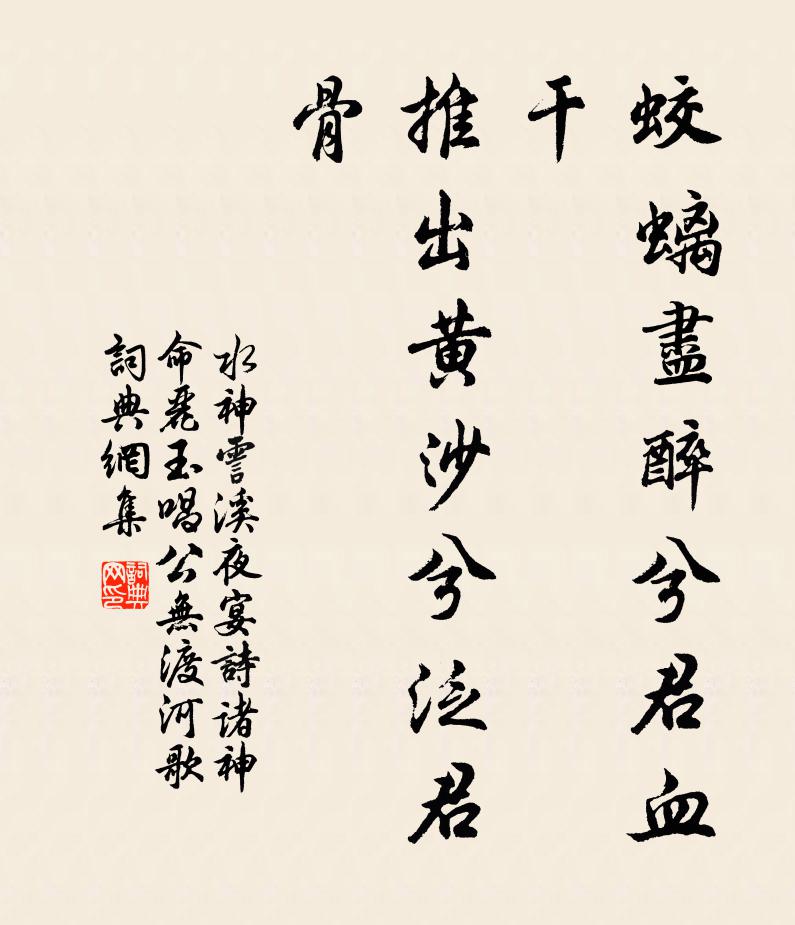 蛟螭盡醉兮君血
干
推出黃沙兮泛君
骨
水神霅溪夜宴詩諸神
命麗玉唱公無渡河歌
詞典網集
詞典
网印